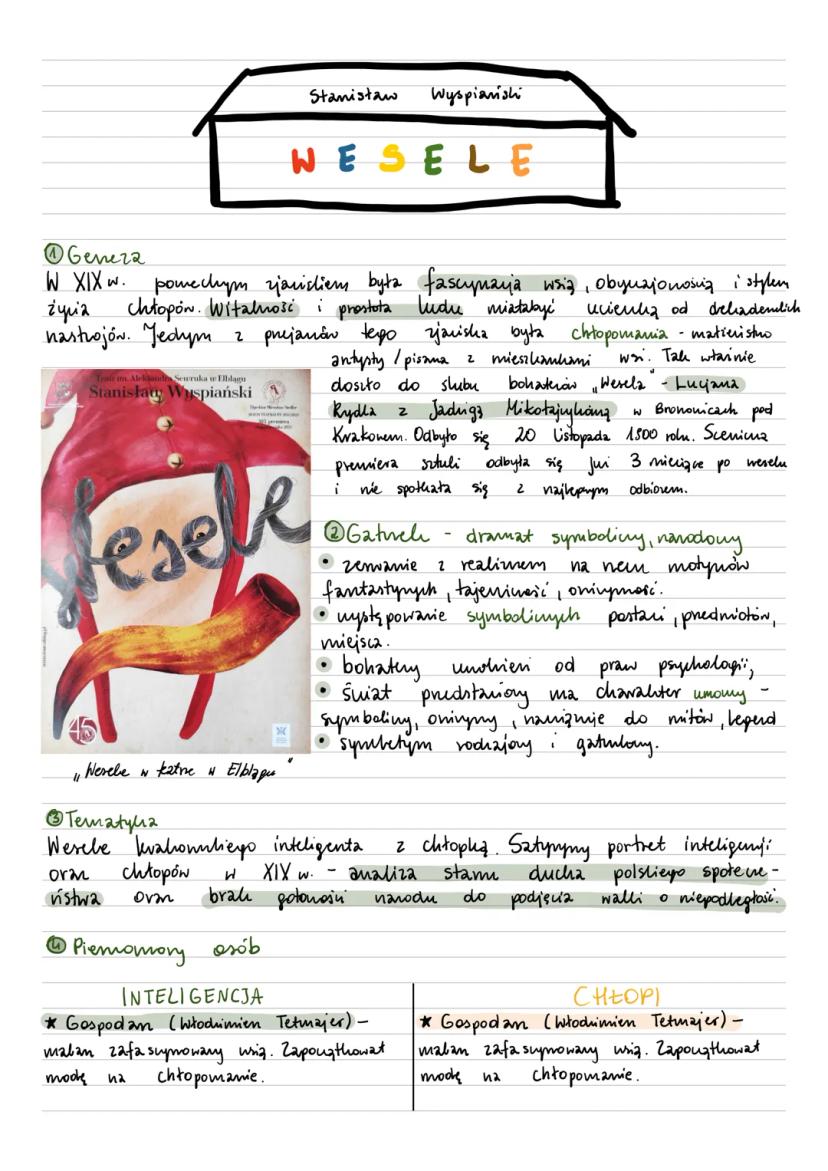 Stanisław Wyspiański
WESELE
① Geneza
W XIX w. powszechnym zjawiskiem była fascynacja wsią, obyczajowością i stylem
życia chłopów. Witalność i prostota ludu miała być ucieczką od dekadenckich
nastrojów. Jednym z przejawów tego zjawiska była chłopomania - małżeństwo
artysty / pisarza z mieszkankami wsi. Tak właśnie
doszło do ślubu bohaterów „Wesela" - Lucjana
Rydla z Jadwigą Mikołajczykówną w Bronowicach pod
Krakowem. Odbyło się 20 listopada 1900 roku. Sceniczna
premiera sztuki odbyła się już 3 miesiące po weselu
i nie spotkała się z najlepszym odbiorem.
Teatr im. Aleksandra Sewruka w Elblągu
Stanisław Wyspiański
Wesele
45
② Gatunek - dramat symboliczny, narodowy
• zerwanie z realizmem na rzecz motywów
fantastycznych, tajemniczość, oniryczność.
• występowanie symbolicznych postaci, przedmiotów,
miejsca.
• bohaterzy uwolnieni od praw psychologii,
• świat przedstawiony ma charakter umowy -
symboliczny, oniryczny, nawiązuje do mitów, legend
• synkretyzm rodzajowy i gatunkowy.
„Wesele w teatrze w Elblągu"
③ Tematyka
Wesele krakowskiego inteligenta z chłopką. Satyryczny portret inteligencji
oraz chłopów w XIX w. - analiza stanu ducha polskiego społecze-
ństwa oraz brak gotowości narodu do podjęcia walki o niepodległość.
④ Pierwowzory osób
INTELIGENCJA
★ Gospodarz (Włodzimierz Tetmajer) -
malarz zafascynowany wsią. Zapoczątkował
modę na chłopomanie.
CHŁOPI
★ Gospodarz (Włodzimierz Tetmajer) -
malarz zafascynowany wsią. Zapoczątkował
modę na chłopomanie.